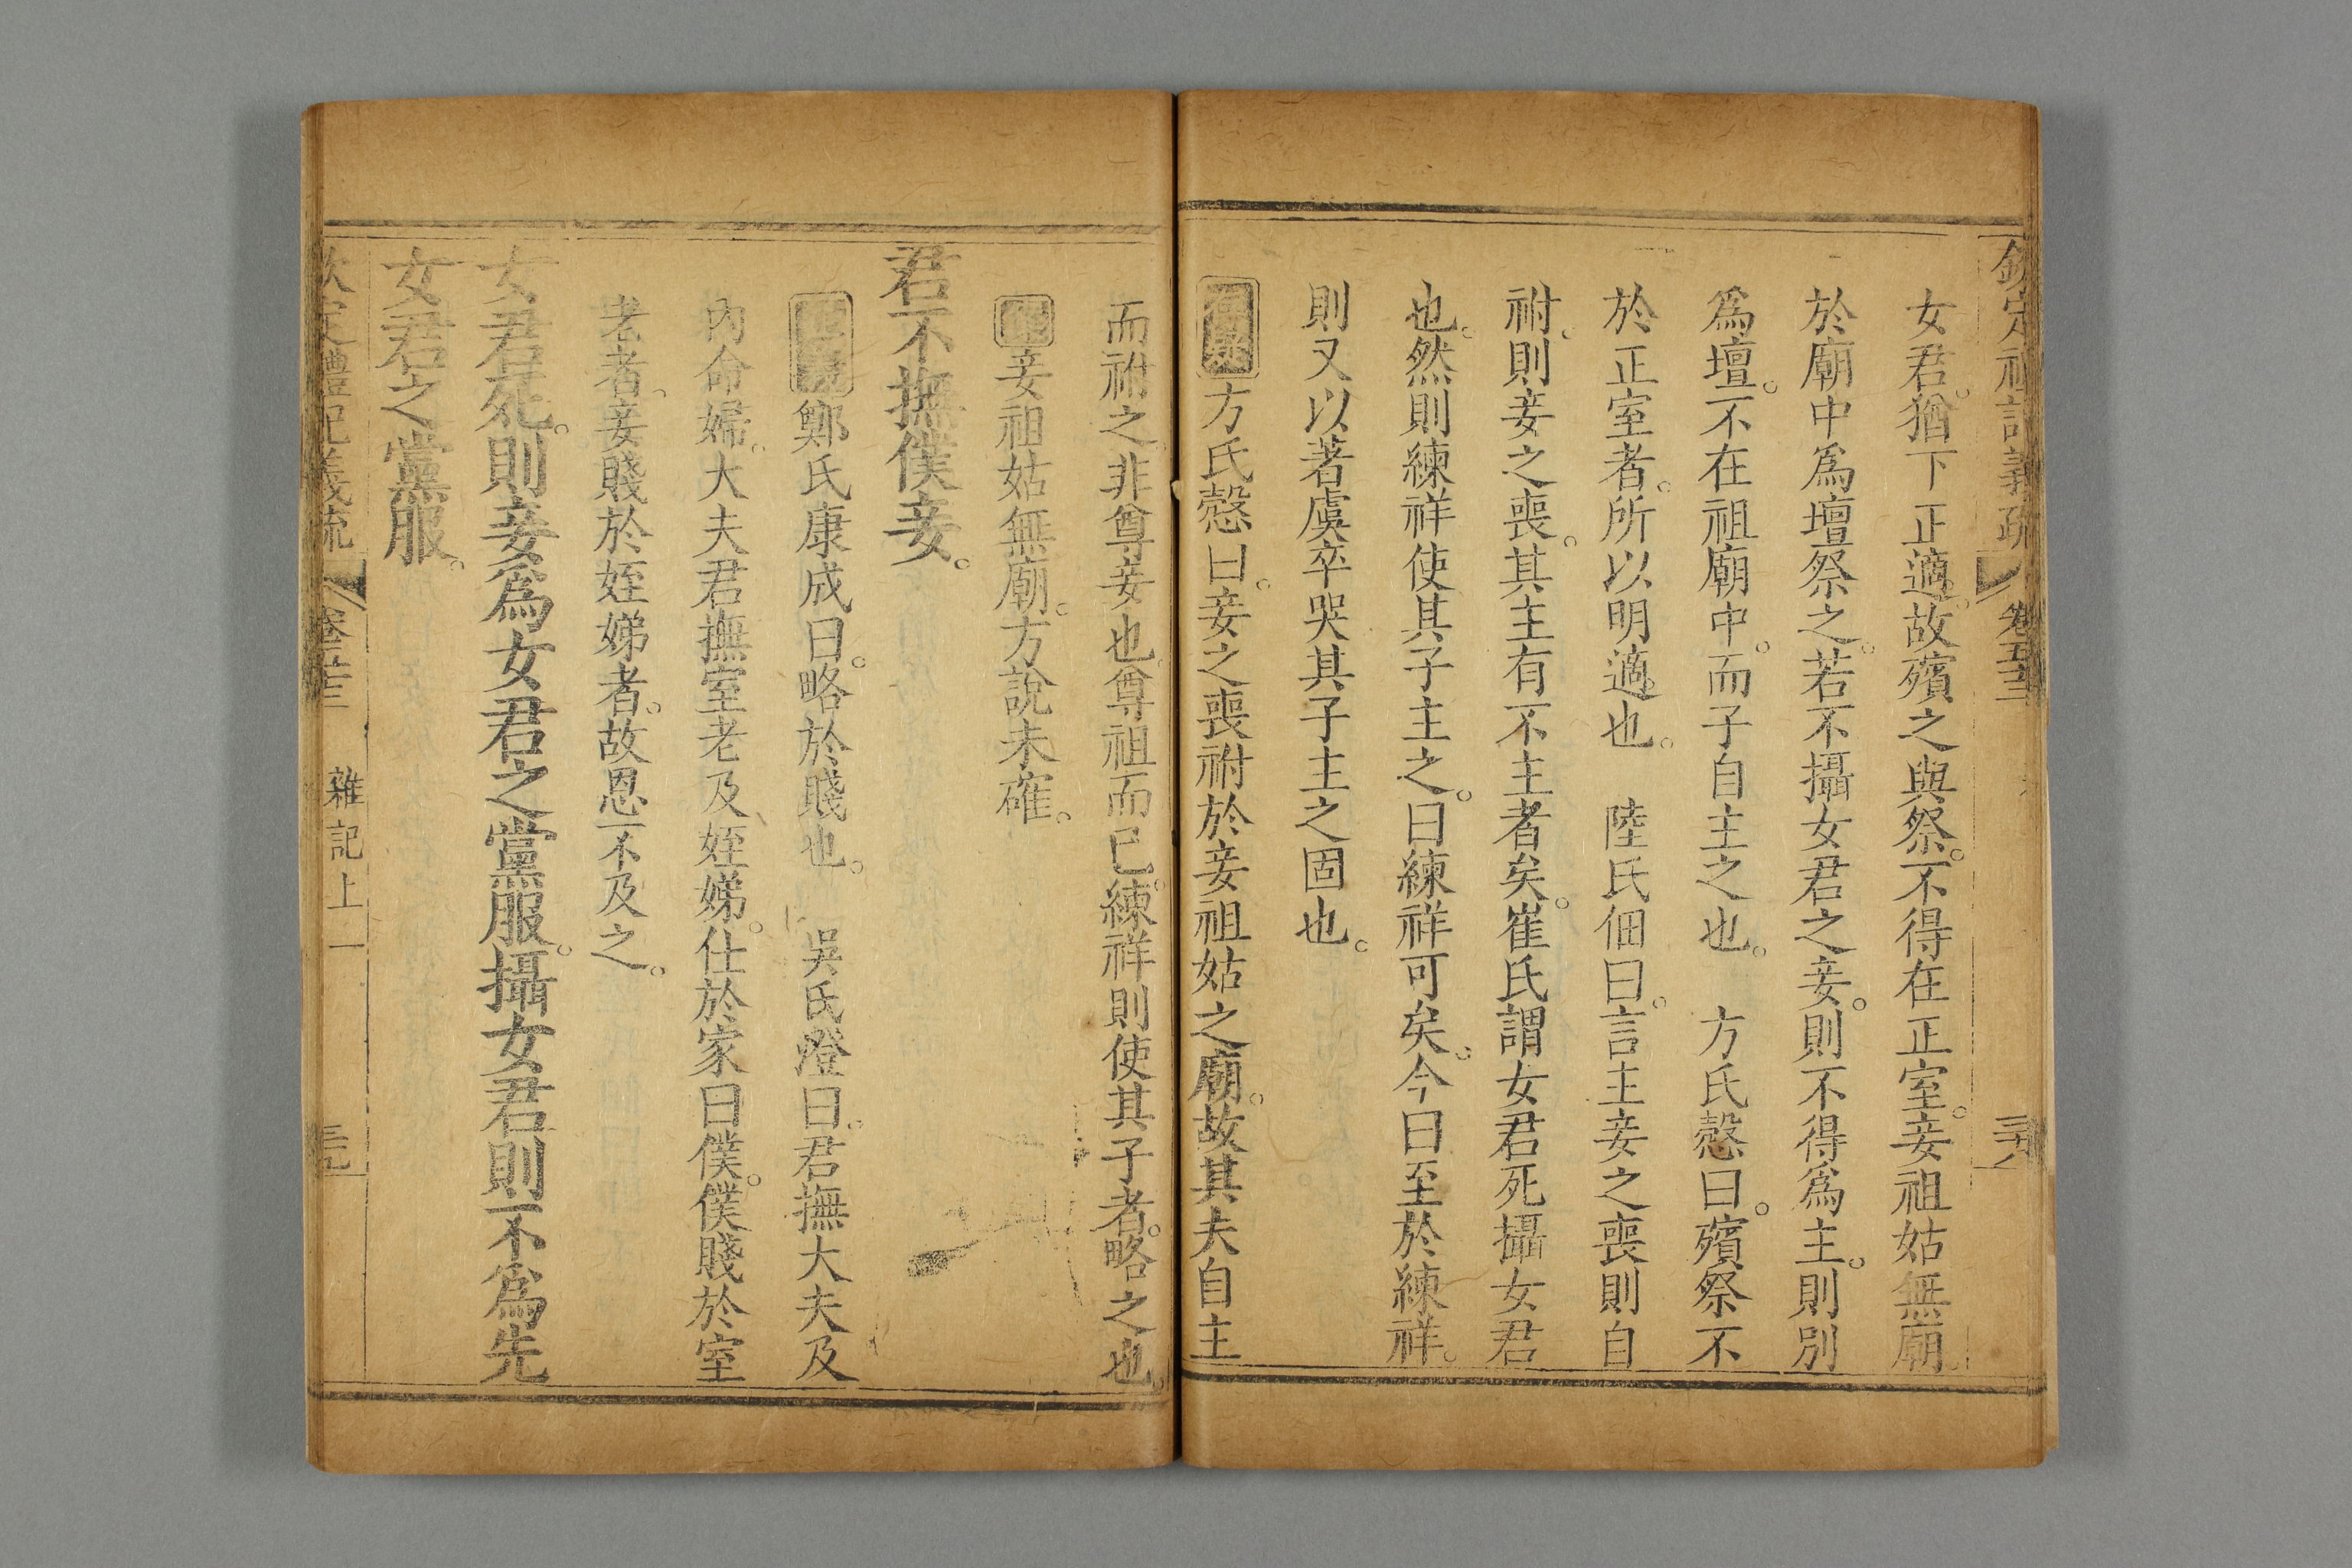 欽定禮記義疏 卷五十三 三十八
女君。猶下正適。故殯之與祭。不得在正室。妾祖姑無廟。
於廟中爲壇祭之。若不攝女君之妾。則不得爲主。則別
爲壇。不在祖廟中。而子自主之也。 方氏慤曰。殯祭不
於正室者。所以明適也。 陸氏佃曰。言主妾之喪則自
祔。則妾之喪。其主有不主者矣。崔氏謂女君死攝女君
也。然則練祥使其子主之。曰練祥可矣。今曰至於練祥。
則又以著虞卒哭其子主之固也。
方氏慤曰。妾之喪祔於妾祖姑之廟。故其夫自主
而祔之。非尊妾也。尊祖而已。練祥則使其子者。略之也。
妾祖姑無廟。方說未確。
君不撫僕妾。
鄭氏康成曰。略於賤也。 吳氏澄曰。君撫大夫及
內命婦。大夫君撫室老及姪娣。仕於家曰僕。僕賤於室
老者。妾賤於姪娣者。故恩不及之。
女君死。則妾爲女君之黨服。攝女君則不爲先
女君之黨服。
欽定禮記義疏 卷五十三 雜記上一 三十九